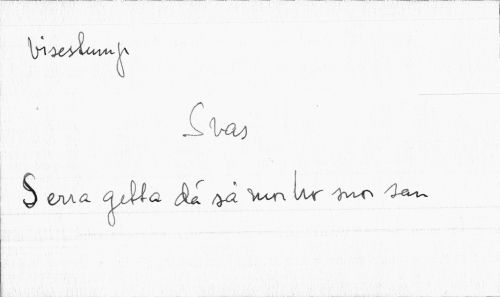 Visestump
Svas
Serra getta då så mor ho mor san